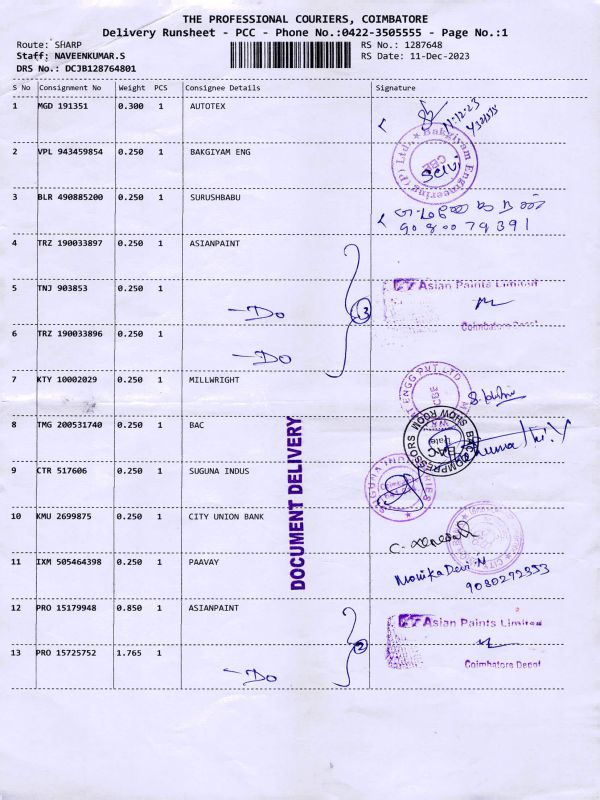 THE PROFESSIONAL COURIERS, COIMBATORE
Delivery Runsheet - PCC - Phone No.:0422-3505555 - Page No.:1
Route: SHARP
RS No.: 1287648
Staff: NAVEENKUMAR.S
RS Date: 11-Dec-2023
DRS No.: DCJB128764801
S No Consignment No Weight PCS Consignee Details Signature
1 MGD 191351 0.300 1 AUTOTEX
11.12.23
2 VPL 943459854 0.250 1 BAKGIYAM ENG
Bakgiyam Engineering (P) Ltd.,
CBE
Selvi
3 BLR 490885200 0.250 1 SURUSHBABU
90800 79391
4 TRZ 190033897 0.250 1 ASIANPAINT
5 TNJ 903853 0.250 1
Asian Paints Limited
- Do
3
Coimbatore Depot
6 TRZ 190033896 0.250 1
- Do
7 KTY 10002029 0.250 1 MILLWRIGHT
ENGG PVT LTD
8 TMG 200531740 0.250 1 BAC
BAC COMPRESSORS SHOW ROOM
BAC
9 CTR 517606 0.250 1 SUGUNA INDUS
DOCUMENT DELIVERY
10 KMU 2699875 0.250 1 CITY UNION BANK
11 IXM 505464398 0.250 1 PAAVAY
Monika Devi.N
9080272353
12 PRO 15179948 0.850 1 ASIANPAINT
Asian Paints Limited
2
13 PRO 15725752 1.765 1
Coimbatore Depot
- Do